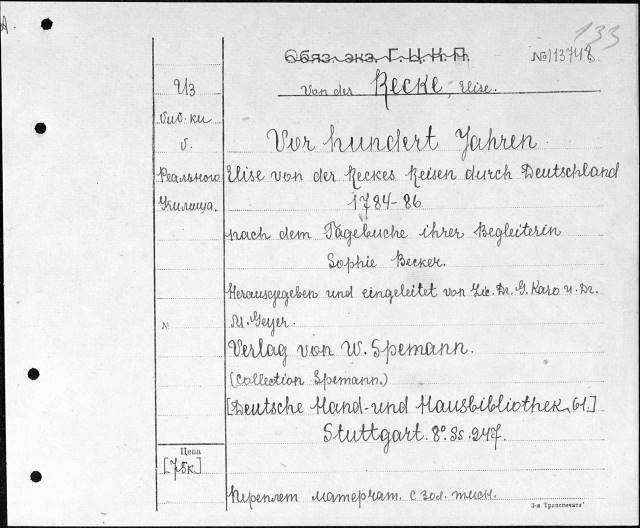 133
Обяз. экз. Г.Ц.К.П.
№ 113748.
Von der Recke, Elise.
Из
биб-ки
б.
Реального
Училища.
Vor hundert Jahren
Elise von der Reckes Reisen durch Deutschland
1784-86
nach dem Tagebuche ihrer Begleiterin
Sophie Becker.
Herausgegeben und eingeleitet von Lic. Dr. G. Karo u. Dr.
M. Geyer.
№
Verlag von W. Spemann.
(Collection Spemann.)
[Deutsche Hand-und Hausbibliothek, 61.]
Stuttgart. 8° Ss. 247.
Цена
[75к.]
Переплет матерчат. с зол. тисн.
3-я Транспечать